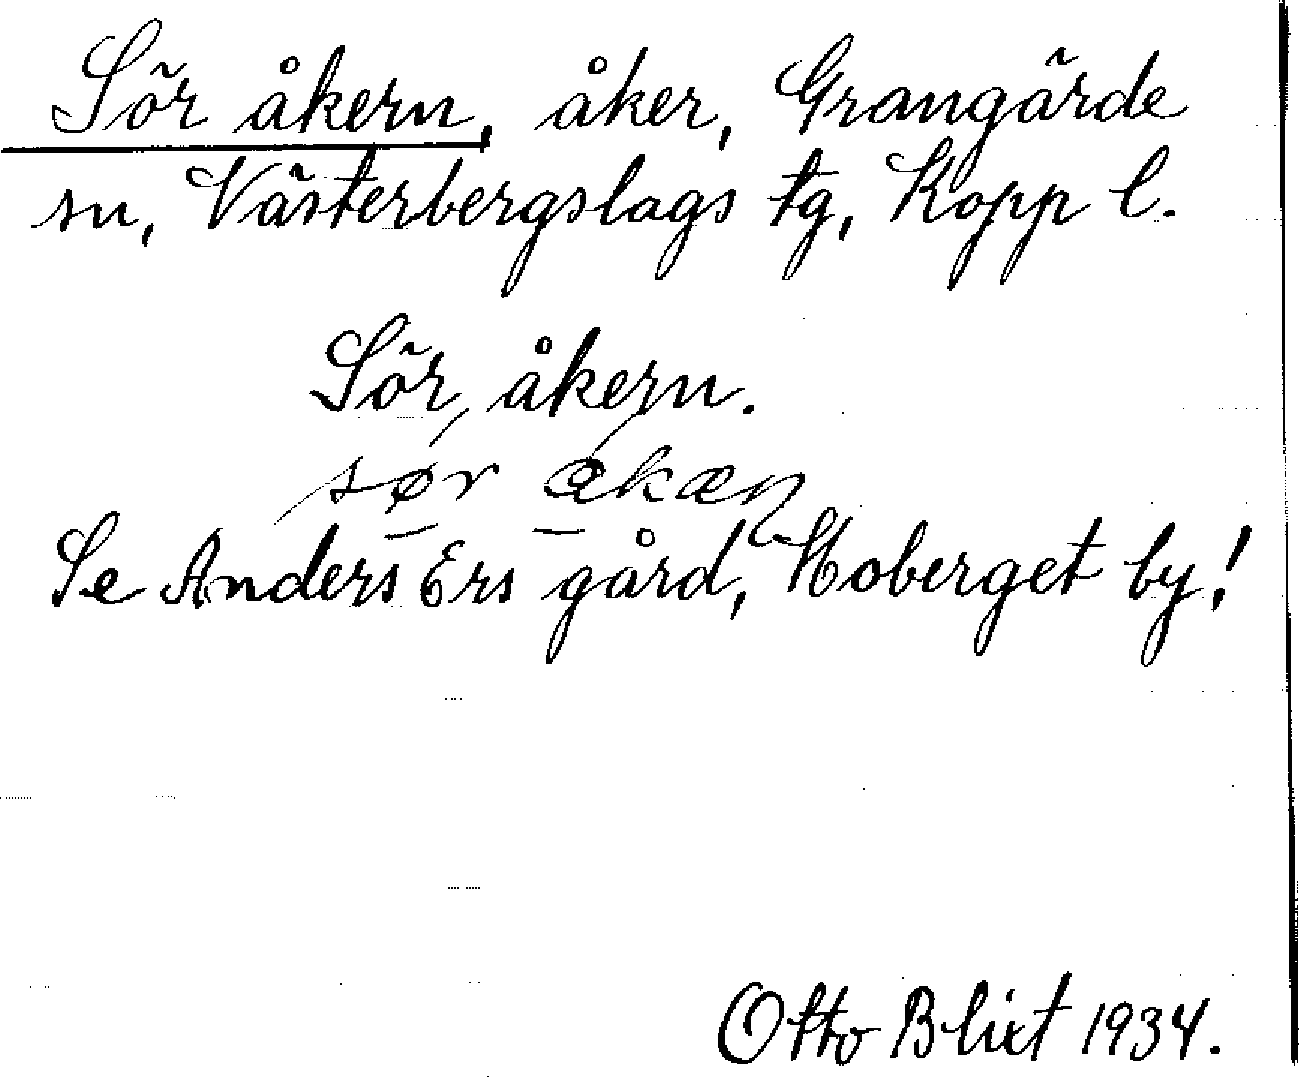 Sör åkern, åker, Grangärde
sn, Västerbergslags tg, Kopp l.
Sör, åkern.
sør åkæn
Se Anders Ers gård, Hoberget by!
Otto Blixt 1934.